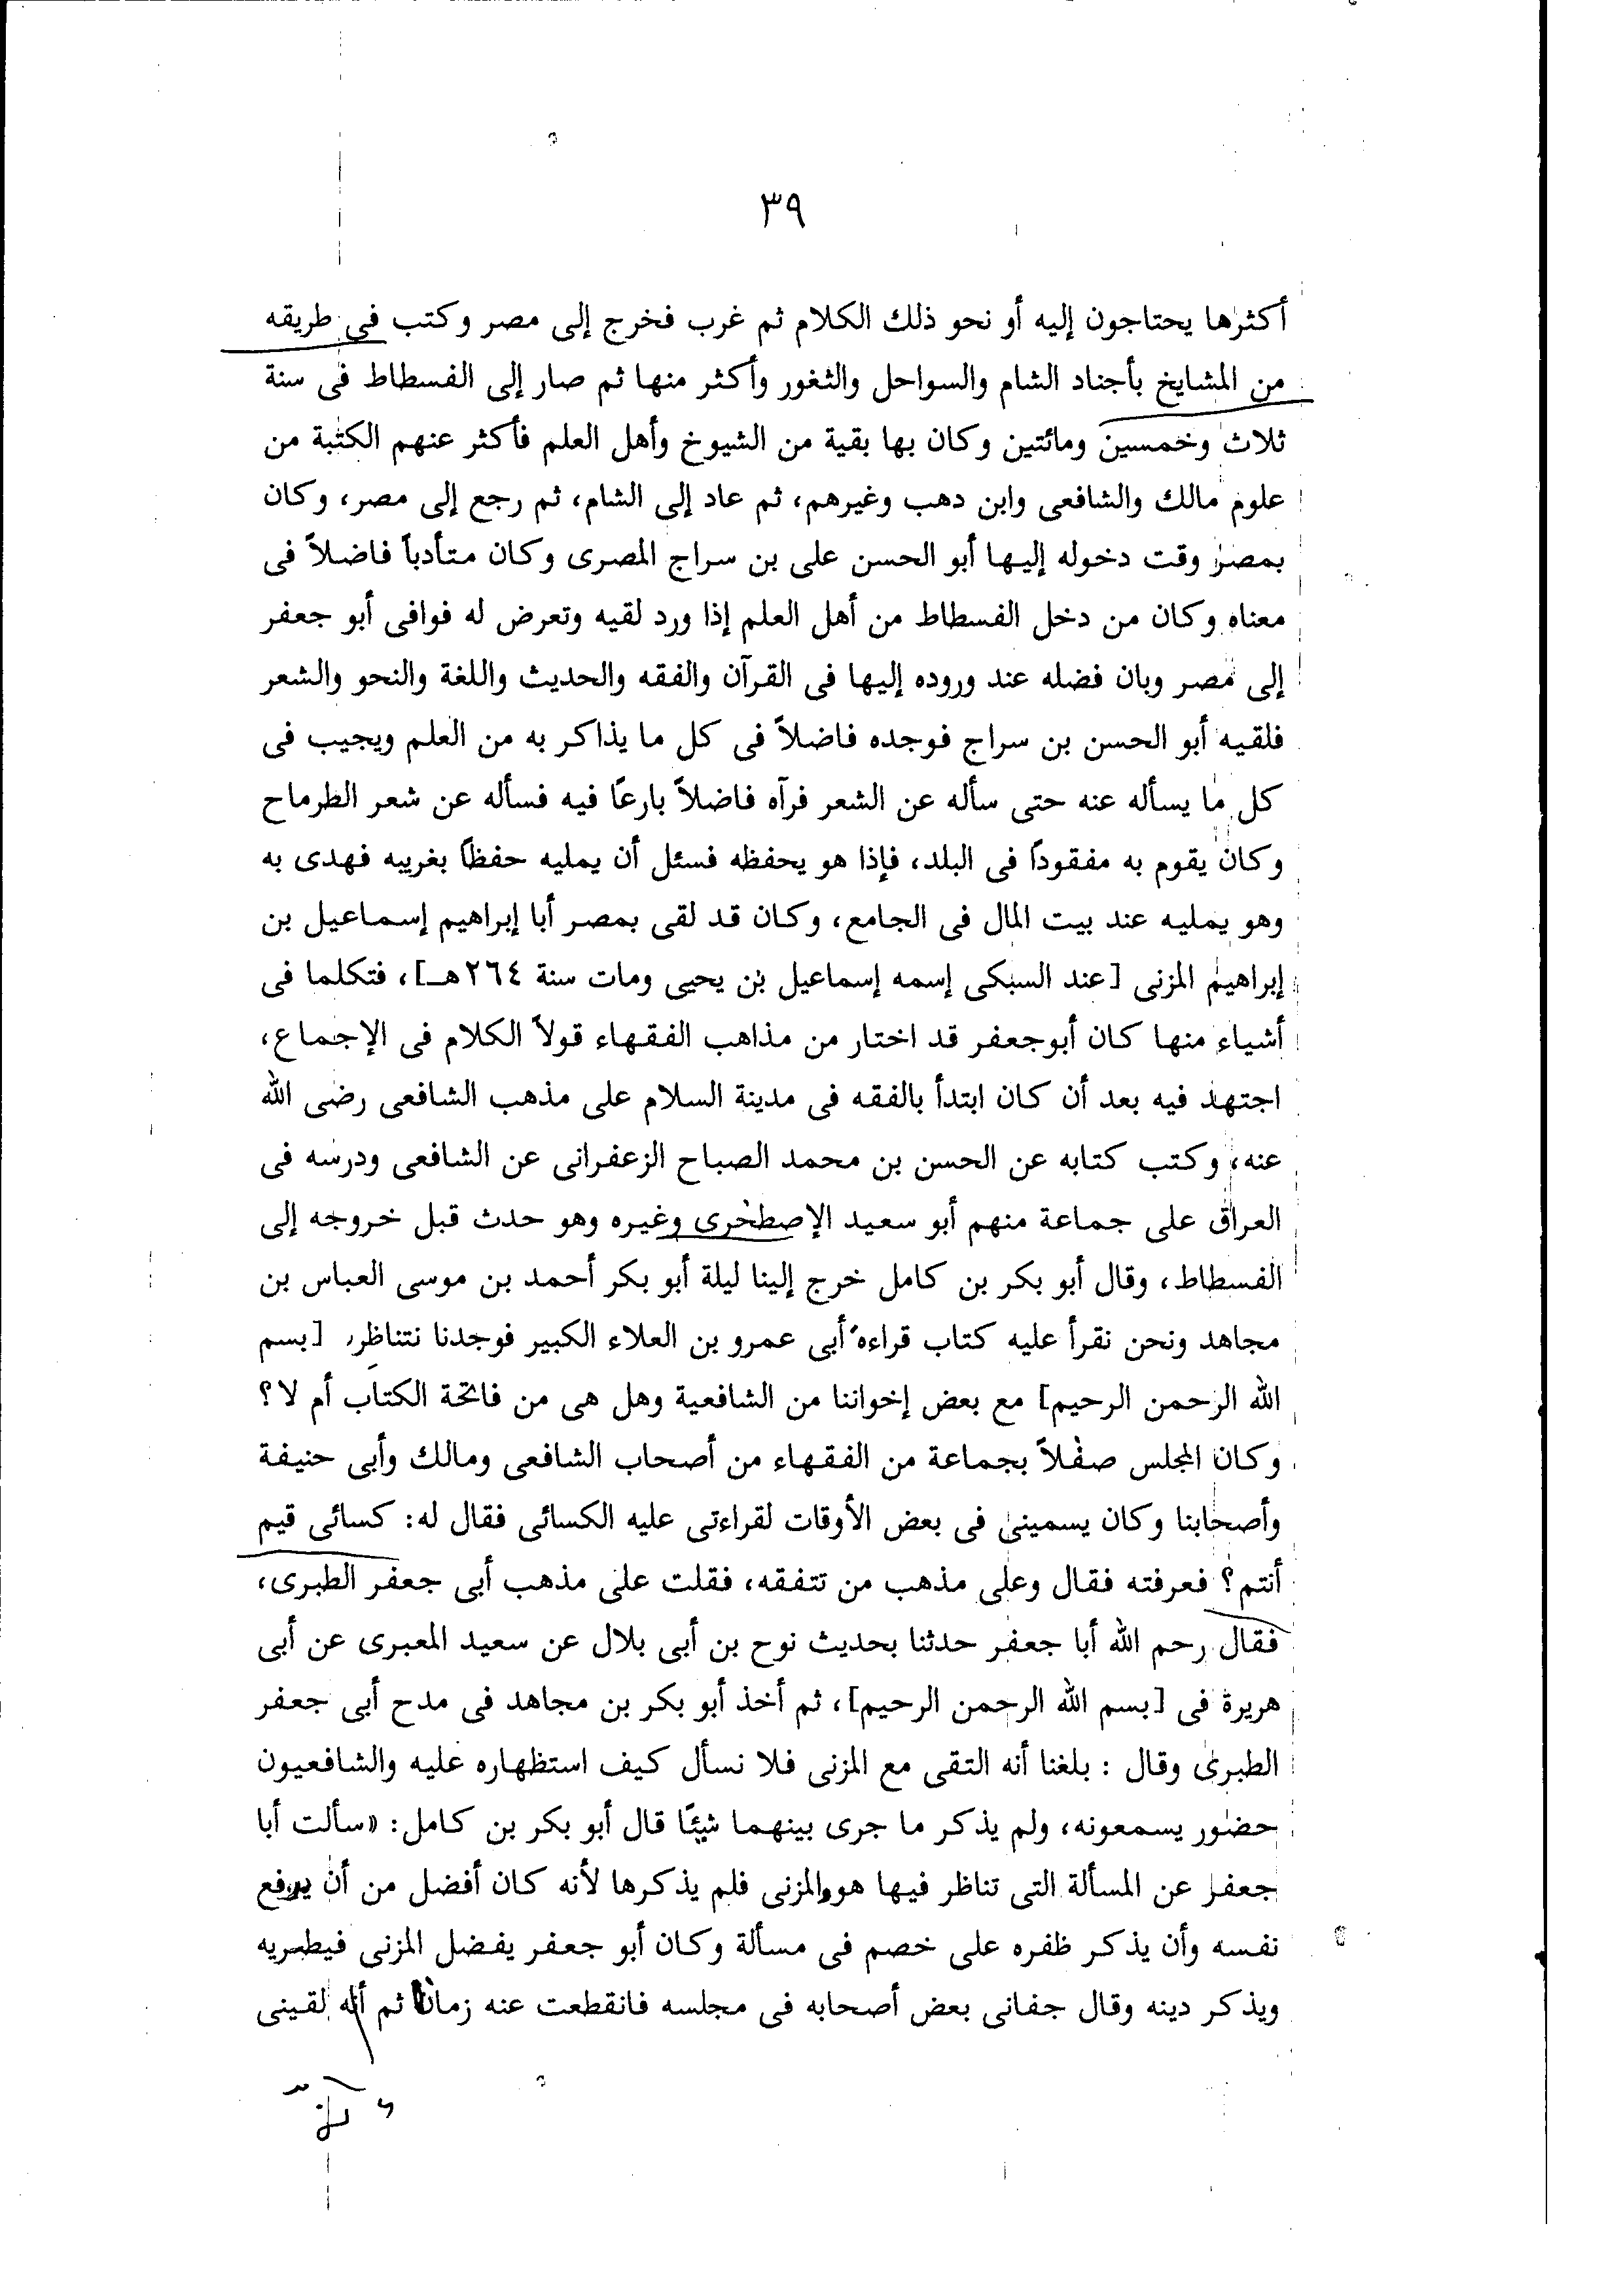 ٣٩
أكثرها يحتاجون إليه أو نحو ذلك الكلام ثم غرب فخرج إلى مصر وكتب فى طريقه
من المشايخ بأجناد الشام والسواحل والثغور وأكثر منها ثم صار إلى الفسطاط فى سنة
ثلاث وخمسين ومائتين وكان بها بقية من الشيوخ وأهل العلم فأكثر عنهم الكتبة من
علوم مالك والشافعى وابن دهب وغيرهم، ثم عاد إلى الشام، ثم رجع إلى مصر، وكان
بمصر وقت دخوله إليها أبو الحسن على بن سراج المصرى وكان متأدباً فاضلاً فى
معناه وكان من دخل الفسطاط من أهل العلم إذا ورد لقيه وتعرض له فوافى أبو جعفر
إلى مصر وبان فضله عند وروده إليها فى القرآن والفقه والحديث واللغة والنحو والشعر
فلقيه أبو الحسن بن سراج فوجده فاضلاً فى كل ما يذاكر به من العلم ويجيب فى
كل ما يسأله عنه حتى سأله عن الشعر فرآه فاضلاً بارعًا فيه فسأله عن شعر الطرماح
وكان يقوم به مفقوداً فى البلد، فإذا هو يحفظه فسئل أن يمليه حفظاً بغريبه فهدى به
وهو يمليه عند بيت المال فى الجامع، وكان قد لقى بمصر أبا إبراهيم إسماعيل بن
إبراهيم المزنى [عند السبكى إسمه إسماعيل بن يحيى ومات سنة ٢٦٤هـ]، فتكلما فى
أشياء منها كان أبوجعفر قد اختار من مذاهب الفقهاء قولاً الكلام فى الإجماع،
اجتهد فيه بعد أن كان ابتدأ بالفقه فى مدينة السلام على مذهب الشافعى رضى الله
عنه، وكتب كتابه عن الحسن بن محمد الصباح الزعفرانى عن الشافعى ودرسه فى
العراق على جماعة منهم أبو سعيد الإصطخرى وغيره وهو حدث قبل خروجه إلى
الفسطاط، وقال أبو بكر بن كامل خرج إلينا ليلة أبو بكر أحمد بن موسى العباس بن
مجاهد ونحن نقرأ عليه كتاب قراءة أبى عمرو بن العلاء الكبير فوجدنا نتناظر [بسم
الله الرحمن الرحيم] مع بعض إخواننا من الشافعية وهل هى من فاتحة الكتاب أم لا؟
وكان المجلس صفلاً بجماعة من الفقهاء من أصحاب الشافعى ومالك وأبى حنيفة
وأصحابنا وكان يسمينى فى بعض الأوقات لقراءتى عليه الكسائى فقال له: كسائى قيم
أنتم؟ فعرفته فقال وعلى مذهب من تتفقه، فقلت على مذهب أبى جعفر الطبرى،
فقال رحم الله أبا جعفر حدثنا بحديث نوح بن أبى بلال عن سعيد المعبرى عن أبى
هريرة فى [بسم الله الرحمن الرحيم]، ثم أخذ أبو بكر بن مجاهد فى مدح أبى جعفر
الطبرى وقال : بلغنا أنه التقى مع المزنى فلا نسأل كيف استظهاره عليه والشافعيون
حضور يسمعونه، ولم يذكر ما جرى بينهما شيئًا قال أبو بكر بن كامل: «سألت أبا
جعفر عن المسألة التى تناظر فيها هو والمزنى فلم يذكرها لأنه كان أفضل من أن يرفع
نفسه وأن يذكر ظفره على خصم فى مسألة وكان أبو جعفر يفضل المزنى فيطريه
ويذكر دينه وقال جفانى بعض أصحابه فى مجلسه فانقطعت عنه زمانا ثم أنه لقينى